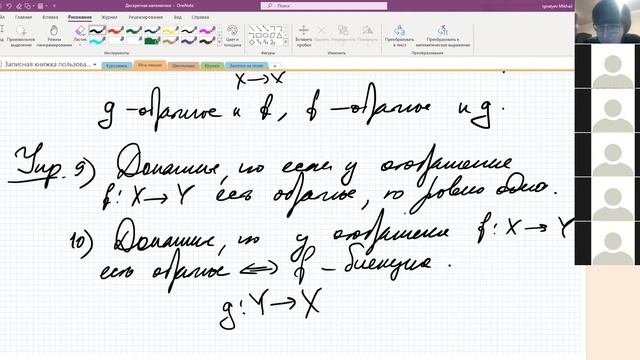 Дискретная математика - OneNote
Поиск
Ignatyev Mikhail
Главная Вставка Рисование Журнал Рецензирование Вид Справка
Произвольное выделение
Режим панорамирования
Ластик
Фигуры
Преобразовать в текст
Преобразовать в математическое выражение
Инструменты
Преобразование
Записная книжка пользова...
Курсовики
Мои лекции
Школьники
Кружки
Заметки на полях
X → X
g – обратное к f, f – обратное к g.
Упр. 9) Докажите, что если у отображения
f: X → Y есть обратное, то ровно одно.
10) Докажите, что у отображения f: X → Y
есть обратное ⟺ f – биекция.
g: Y → X